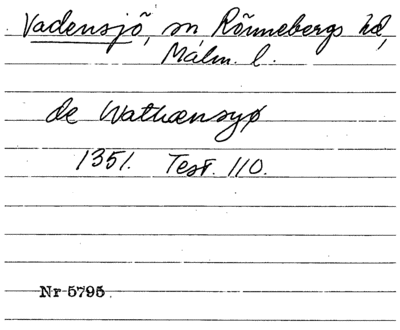 Vadensjö, sn Rönnebergs hd,
Malm. l.
de Wathænsyø
1351. Test. 110.
Nr 5795.